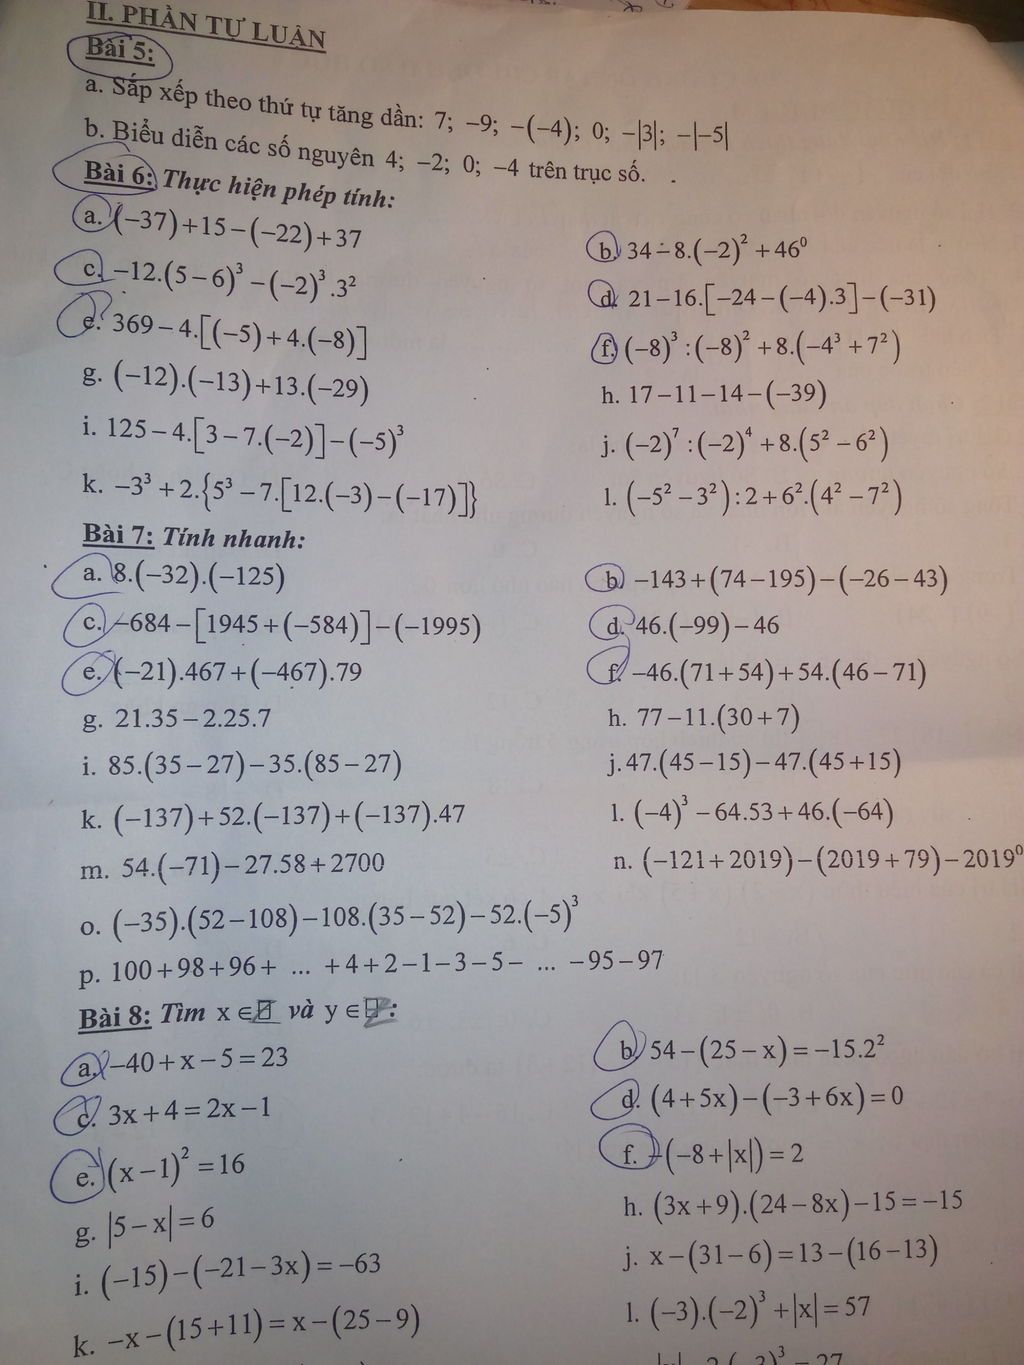 II. PHẦN TỰ LUẬN
Bài 5:
a. Sắp xếp theo thứ tự tăng dần: 7; −9; −(−4); 0; −|3|; −|−5|
b. Biểu diễn các số nguyên 4; −2; 0; −4 trên trục số.
Bài 6: Thực hiện phép tính:
a. (−37)+15−(−22)+37
b. 34−8.(−2)² +46⁰
c. −12.(5−6)³ −(−2)³.3²
d. 21−16.[−24−(−4).3]−(−31)
e. 369−4.[(−5)+4.(−8)]
f. (−8)³ :(−8)² +8.(−4³ +7²)
g. (−12).(−13)+13.(−29)
h. 17−11−14−(−39)
i. 125−4.[3−7.(−2)]−(−5)³
j. (−2)⁷ :(−2)⁴ +8.(5² −6²)
k. −3³ +2.{5³ −7.[12.(−3)−(−17)]}
l. (−5² −3²):2+6².(4² −7²)
Bài 7: Tính nhanh:
a. 8.(−32).(−125)
b. −143+(74−195)−(−26−43)
c. −684−[1945+(−584)]−(−1995)
d. 46.(−99)−46
e. (−21).467+(−467).79
f. −46.(71+54)+54.(46−71)
g. 21.35−2.25.7
h. 77−11.(30+7)
i. 85.(35−27)−35.(85−27)
j. 47.(45−15)−47.(45+15)
k. (−137)+52.(−137)+(−137).47
l. (−4)³ −64.53+46.(−64)
m. 54.(−71)−27.58+2700
n. (−121+2019)−(2019+79)−2019⁰
o. (−35).(52−108)−108.(35−52)−52.(−5)³
p. 100+98+96+ ... +4+2−1−3−5− ... −95−97
Bài 8: Tìm x ∈ và y ∈ :
a. −40+x−5=23
b. 54−(25−x)=−15.2²
c. 3x+4=2x−1
d. (4+5x)−(−3+6x)=0
e. (x−1)² =16
f. −(−8+|x|)=2
g. |5−x|=6
h. (3x+9).(24−8x)−15=−15
i. (−15)−(−21−3x)=−63
j. x−(31−6)=13−(16−13)
k. −x−(15+11)=x−(25−9)
l. (−3).(−2)³ +|x|=57